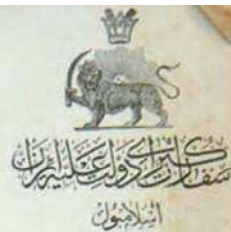 سفارت کبرای دولت علیه ایران
اسلامبول